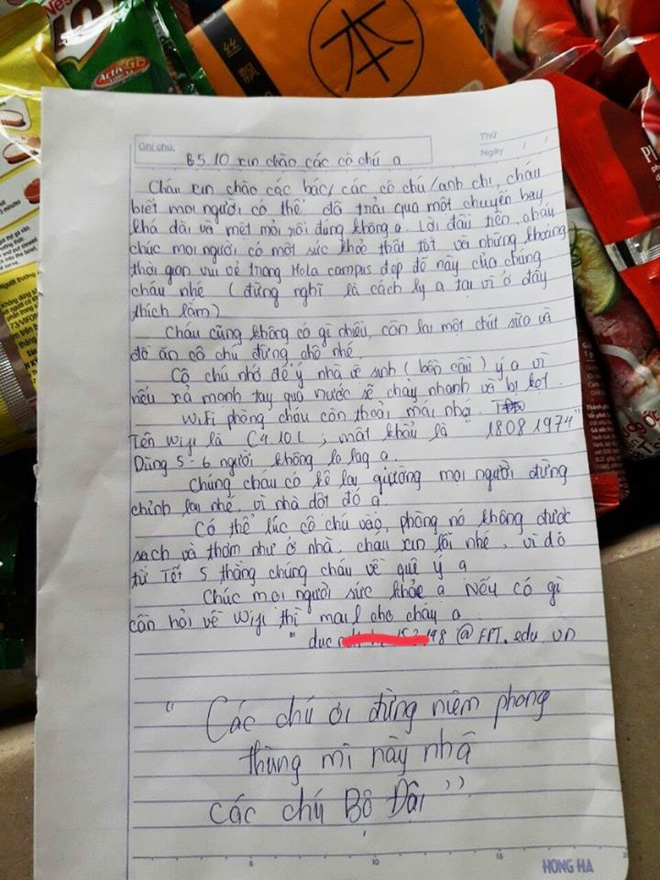 Nes
本
飘
Ghi chú:
Thứ
Ngày
B5.10 xin chào các cô chú ạ
Cháu xin chào các bác/ các cô chú/anh chị, cháu
biết mọi người có thể đã trải qua một chuyến bay
khá dài và mệt mỏi rồi đúng không ạ. Lời đầu tiên, cháu
chúc mọi người có một sức khỏe thật tốt và những khoảng
thời gian vui vẻ trong Hola campus đẹp đẽ này của chúng
cháu nhé (đừng nghĩ là cách ly ạ tại vì ở đây
thích lắm)
Cháu cũng không có gì nhiều, còn lại một chút sữa và
đồ ăn cô chú đừng chê nhé.
Cô chú nhớ để ý nhà vệ sinh (bồn cầu) ý ạ vì
nếu xả mạnh tay quá nước sẽ chảy nhanh và bị kẹt.
Wifi phòng cháu còn thoải mái nhá.
Tên Wifi là C410L, mật khẩu là 18081974"
Dùng 5-6 người không lo lag ạ.
Chúng cháu có kê lại giường mọi người đừng
chỉnh lại nhé, vì nhà dột đó ạ.
Có thể lúc cô chú vào, phòng nó không được
sạch và thơm như ở nhà, cháu xin lỗi nhé, vì đó
từ Tết 5 tháng chúng cháu về quê ý ạ
Chúc mọi người sức khỏe ạ Nếu có gì
cần hỏi về Wifi thì mail cho cháu ạ
"duc 98@FPT.edu.vn
"Các chú ơi đừng niêm phong
thùng mì này nhá
các chú Bộ Đội"
5 10
HONG HA